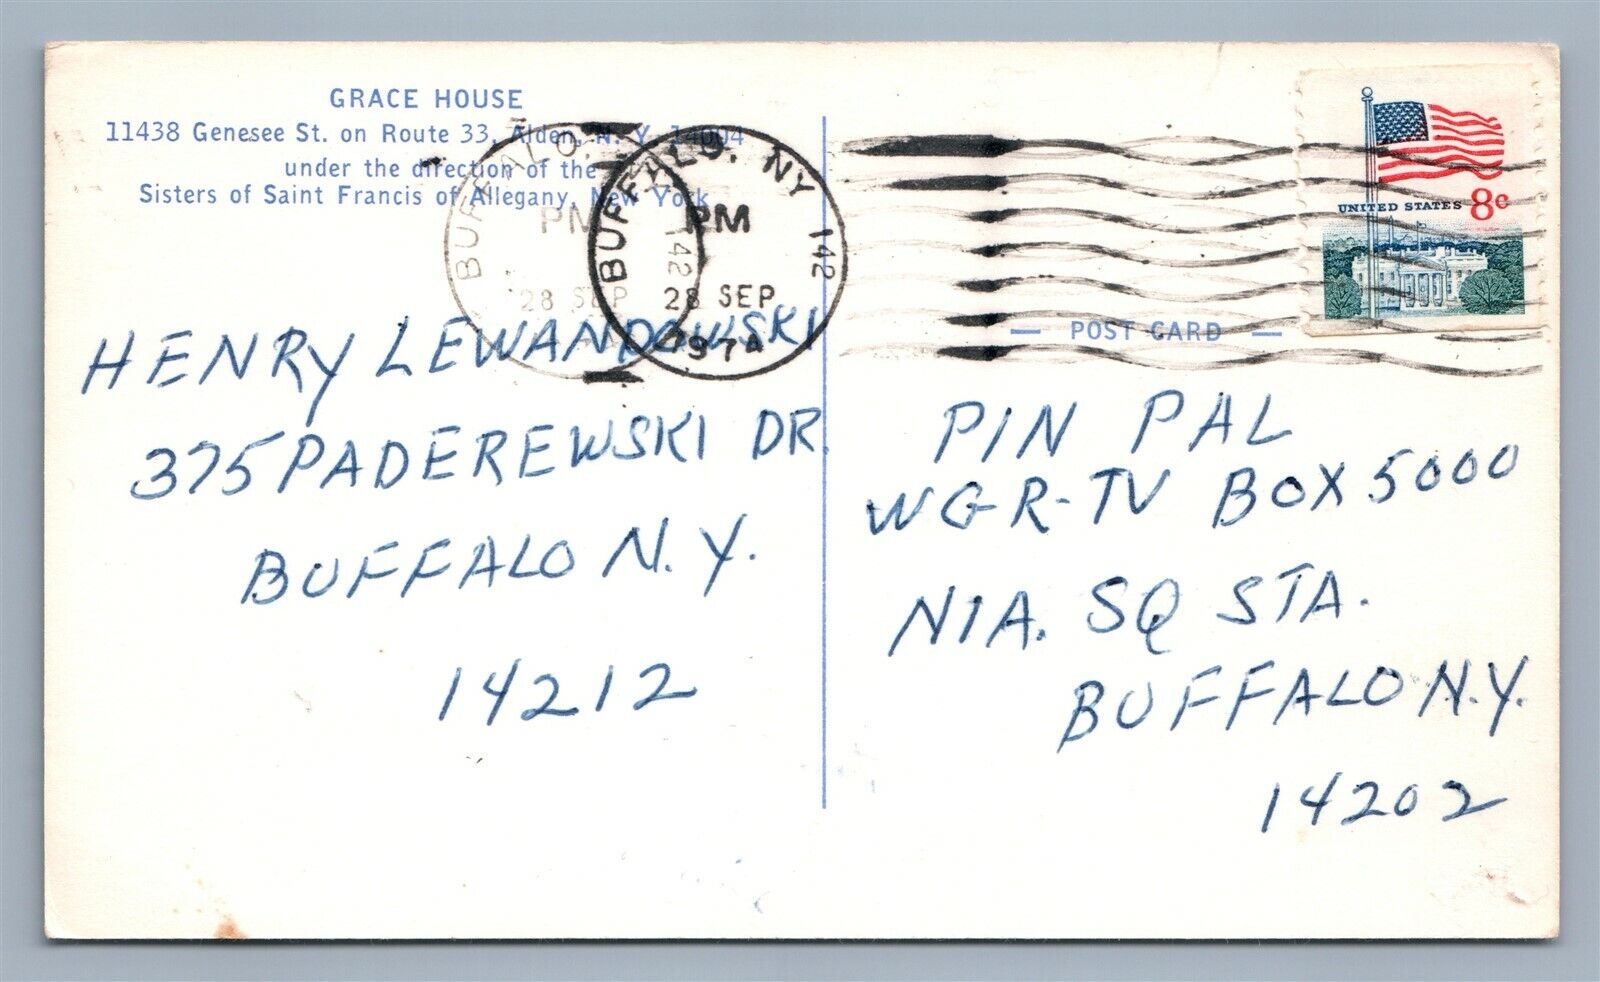 GRACE HOUSE
11438 Genesee St. on Route 33, Alden, N. Y. 14004
under the direction of the
Sisters of Saint Francis of Allegany, New York
BUFFALO
PM
142
28 SEP
BUFFALO, NY 142
PM
28 SEP
1974
UNITED STATES 8c
POST CARD
HENRY LEWANDOWSKI
375 PADEREWSKI DR.
BUFFALO N.Y.
14212
PIN PAL
WGR-TV BOX 5000
NIA. SQ STA.
BUFFALO N.Y.
14202